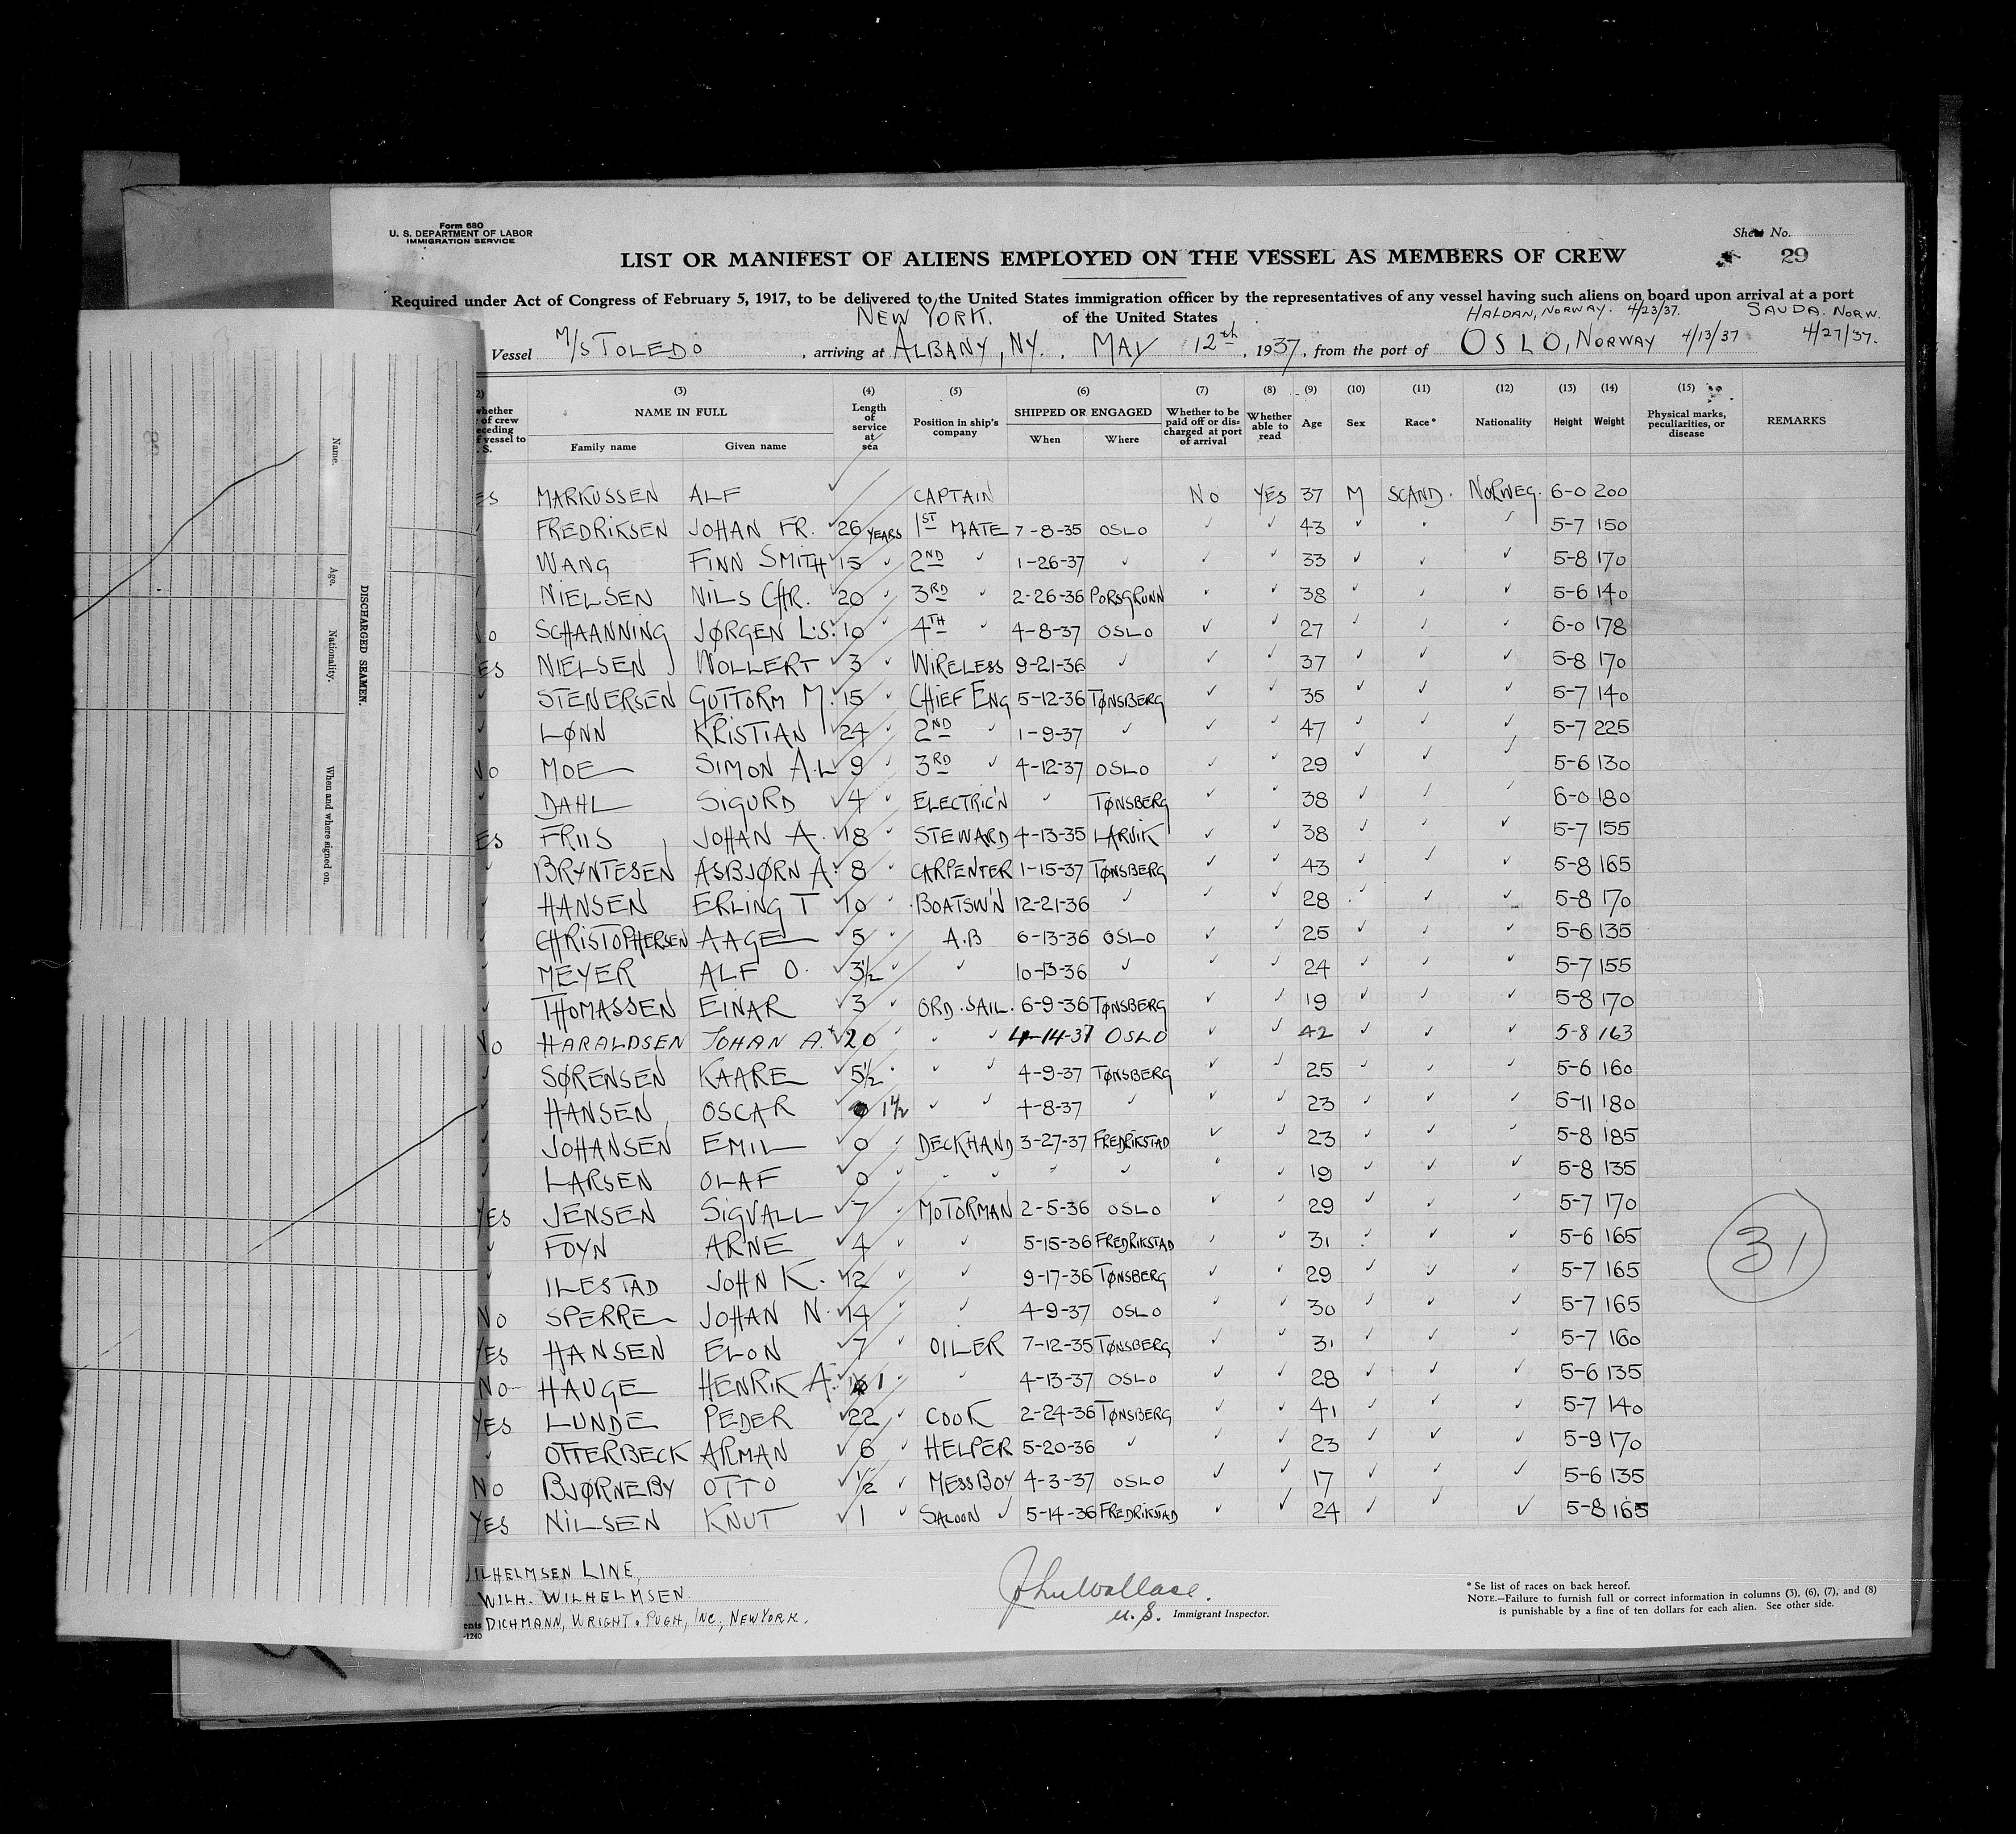 Form 680
U. S. DEPARTMENT OF LABOR
IMMIGRATION SERVICE
Sheet No.
29
LIST OR MANIFEST OF ALIENS EMPLOYED ON THE VESSEL AS MEMBERS OF CREW
Required under Act of Congress of February 5, 1917, to be delivered to the United States immigration officer by the representatives of any vessel having such aliens on board upon arrival at a port
NEW YORK. of the United States HALDAN, NORWAY. 4/23/37. SAUDA. NORW.
Vessel M/S TOLEDO, arriving at ALBANY, NY., MAY 12th, 1937, from the port of OSLO, NORWAY 4/13/37 4/27/37.
(3) (4) (5) (6) (7) (8) (9) (10) (11) (12) (13) (14) (15)
NAME IN FULL Length of service at sea Position in ship's company SHIPPED OR ENGAGED Whether to be paid off or discharged at port of arrival Whether able to read Age Sex Race* Nationality Height Weight Physical marks, peculiarities, or disease REMARKS
Family name Given name When Where
ES MARKUSSEN ALF ✓ CAPTAIN NO YES 37 M SCAND. NORWEG. 6-0 200
FREDRIKSEN JOHAN FR. ✓ 26 YEARS 1ST MATE 7-8-35 OSLO ✓ ✓ 43 ✓ ✓ ✓ 5-7 150
WANG FINN SMITH ✓ 15 ✓ 2ND ✓ 1-26-37 ✓ ✓ ✓ 33 ✓ ✓ ✓ 5-8 170
NIELSEN NILS CHR. ✓ 20 ✓ 3RD ✓ 2-26-36 PORSGRUNN ✓ ✓ 38 ✓ ✓ ✓ 5-6 140
NO SCHAANNING JØRGEN L.S. 10 ✓ 4TH ✓ 4-8-37 OSLO ✓ ✓ 27 ✓ ✓ ✓ 6-0 178
ES NIELSEN WOLLERT ✓ 3 ✓ WIRELESS 9-21-36 ✓ ✓ ✓ 37 ✓ ✓ ✓ 5-8 170
✓ STENERSEN GUTTORM M. ✓ 15 ✓ CHIEF ENG 5-12-36 TØNSBERG ✓ ✓ 35 ✓ ✓ ✓ 5-7 140
✓ LØNN KRISTIAN ✓ 24 ✓ 2ND ✓ 1-9-37 ✓ ✓ ✓ 47 ✓ ✓ ✓ 5-7 225
NO MOE SIMON A.L ✓ 9 ✓ 3RD ✓ 4-12-37 OSLO ✓ ✓ 29 ✓ ✓ ✓ 5-6 130
✓ DAHL SIGURD ✓ 4 ✓ ELECTRIC'N ✓ TØNSBERG ✓ ✓ 38 ✓ ✓ ✓ 6-0 180
ES FRIIS JOHAN A. ✓ 18 ✓ STEWARD 4-13-35 LARVIK ✓ ✓ 38 ✓ ✓ ✓ 5-7 155
✓ BRYNTESEN ASBJØRN A. ✓ 8 ✓ CARPENTER 1-15-37 TØNSBERG ✓ ✓ 43 ✓ ✓ ✓ 5-8 165
✓ HANSEN ERLING T ✓ 10 ✓ BOATSW'N 12-21-36 ✓ ✓ ✓ 28 ✓ ✓ ✓ 5-8 170
✓ CHRISTOPHERSEN AAGE ✓ 5 ✓ A.B 6-13-36 OSLO ✓ ✓ 25 ✓ ✓ ✓ 5-6 135
✓ MEYER ALF O. ✓ 3½ ✓ ✓ 10-13-36 ✓ ✓ ✓ 24 ✓ ✓ ✓ 5-7 155
✓ THOMASSEN EINAR ✓ 3 ✓ ORD. SAIL. 6-9-36 TØNSBERG ✓ ✓ 19 ✓ ✓ ✓ 5-8 170
NO HARALDSEN JOHAN A. ✓ 20 ✓ ✓ ✓ 4-14-37 OSLO ✓ ✓ 42 ✓ ✓ ✓ 5-8 163
✓ SØRENSEN KAARE ✓ 5½ ✓ ✓ ✓ 4-9-37 TØNSBERG ✓ ✓ 25 ✓ ✓ ✓ 5-6 160
✓ HANSEN OSCAR ✓ 1½ ✓ ✓ 4-8-37 ✓ ✓ ✓ 23 ✓ ✓ ✓ 5-11 180
✓ JOHANSEN EMIL ✓ 0 ✓ DECKHAND 3-27-37 FREDRIKSTAD ✓ ✓ 23 ✓ ✓ ✓ 5-8 185
✓ LARSEN OLAF ✓ 0 ✓ ✓ ✓ ✓ ✓ ✓ ✓ 19 ✓ ✓ ✓ 5-8 135
YES JENSEN SIGVALL ✓ 7 ✓ MOTORMAN 2-5-36 OSLO ✓ ✓ 29 ✓ ✓ ✓ 5-7 170
✓ FOYN ARNE ✓ 4 ✓ ✓ 5-15-36 FREDRIKSTAD ✓ ✓ 31 ✓ ✓ ✓ 5-6 165
31
✓ ILESTAD JOHN K. ✓ 12 ✓ ✓ 9-17-36 TØNSBERG ✓ ✓ 29 ✓ ✓ ✓ 5-7 165
NO SPERRE JOHAN N. ✓ 14 ✓ ✓ 4-9-37 OSLO ✓ ✓ 30 ✓ ✓ ✓ 5-7 165
YES HANSEN ELON ✓ 7 ✓ OILER 7-12-35 TØNSBERG ✓ ✓ 31 ✓ ✓ ✓ 5-7 160
NO HAUGE HENRIK A. ✓ 1 ✓ ✓ 4-13-37 OSLO ✓ ✓ 28 ✓ ✓ ✓ 5-6 135
YES LUNDE PEDER ✓ 22 ✓ COOK 2-24-36 TØNSBERG ✓ ✓ 41 ✓ ✓ ✓ 5-7 140
✓ OTTERBECK ARMAN ✓ 6 ✓ HELPER 5-20-36 ✓ ✓ ✓ 23 ✓ ✓ ✓ 5-9 170
NO BJØRNEBY OTTO ✓ ½ ✓ MESSBOY 4-3-37 OSLO ✓ ✓ 17 ✓ ✓ ✓ 5-6 135
YES NILSEN KNUT ✓ 1 ✓ SALOON ✓ 5-14-36 FREDRIKSTAD ✓ ✓ 24 ✓ ✓ ✓ 5-8 165
WILHELMSEN LINE,
WILH. WILHELMSEN.
ents DICHMANN, WRIGHT & PUGH, INC., NEW YORK.
-1240
John Wallace.
U. S. Immigrant Inspector.
* Se list of races on back hereof.
NOTE.—Failure to furnish full or correct information in columns (3), (6), (7), and (8)
is punishable by a fine of ten dollars for each alien. See other side.
DISCHARGED SEAMEN.
Name.
Age.
Nationality.
When and where signed on.